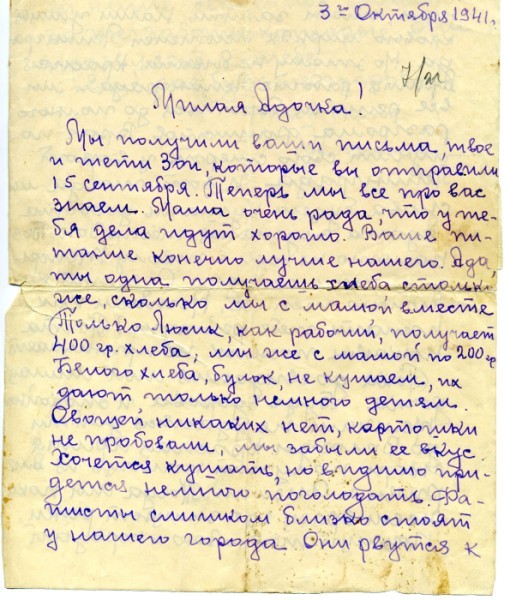 3го Октября 1941 г.
7/XI
Милая Адочка!
Мы получили ваши письма, твое
и тети Зои, которые вы отправили
15 сентября. Теперь мы все про вас
знаем. Мама очень рада, что у те-
бя дела идут хорошо. Ваше пи-
тание конечно лучше нашего. Ада
ты одна получаешь хлеба столько
же, сколько мы с мамой вместе
Только Люсик, как рабочий, получает
400 гр. хлеба, мы же с мамой по 200 гр.
Белого хлеба, булок, не кушаем, их
дают только немного детям.
Овощей никаких нет, картошки
не пробовали, мы забыли ее вкус.
Хочется кушать, но видимо при-
дется немного поголодать. Фа-
шисты слишком близко стоят
у нашего города. Они рвутся к